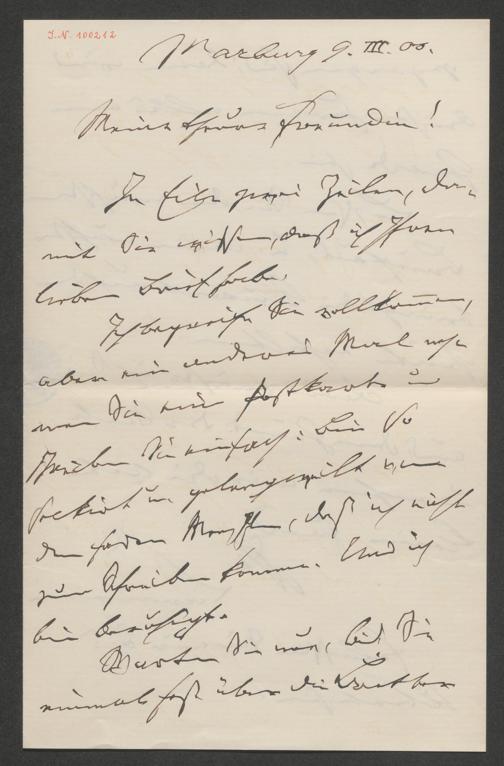 J.N. 100212
Marburg 9. III. 00.
Meine theure Freundin!
In Eile zwei Zeilen, da-
mit Sie wissen, daß ich Ihren
lieben Brief habe.
Ich begreife Sie vollkommen,
aber ein anderes Mal neh-
men Sie eine Postkarte u
schreiben Sie einfach: Bin so
sekirt u. gelangweilt von
den faden Menschen, daß ich nicht
zum Schreiben komme. Und ich
bin beruhigt.
Warten Sie nur, bis Sie
einmal fest über die Bretter